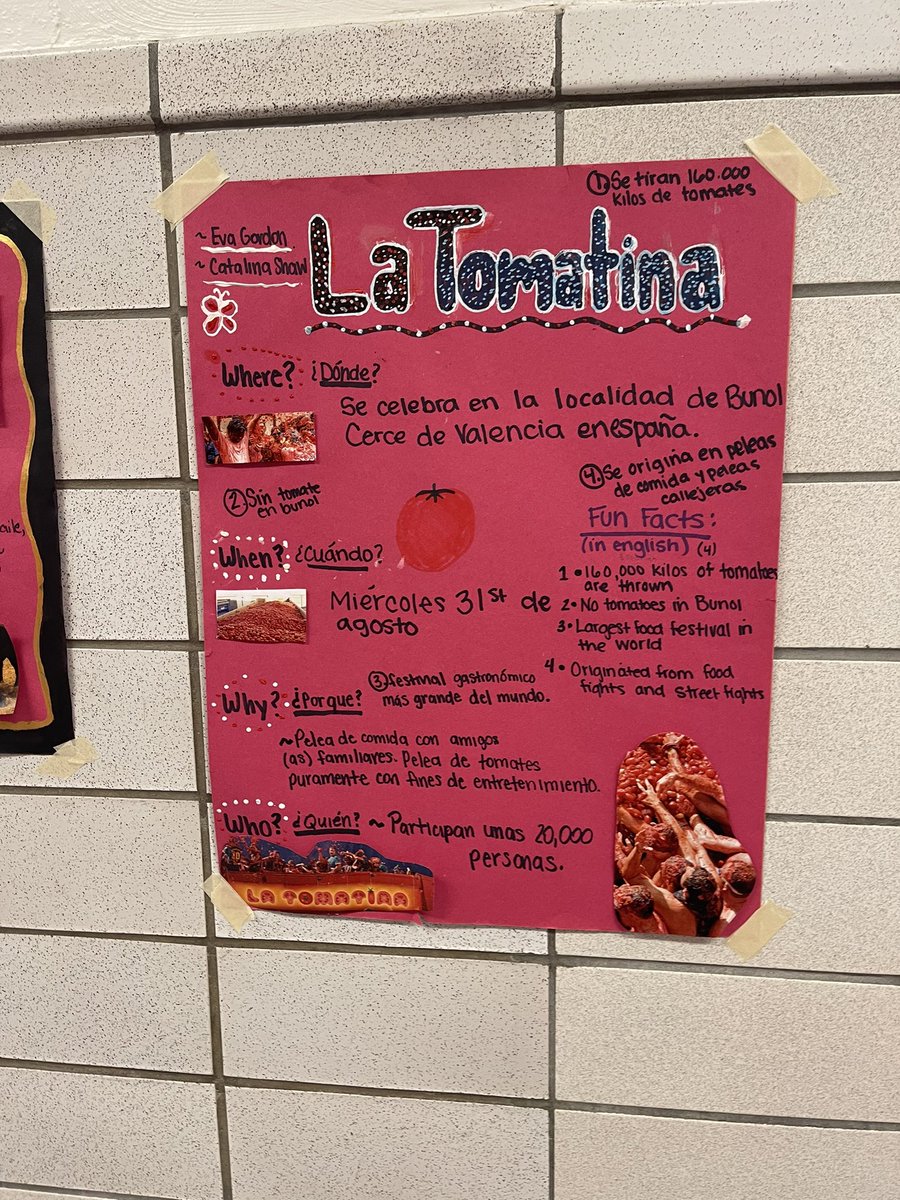 ① Se tiran 160.000
kilos de tomates
~ Eva Gordon
~ Catalina Shaw
La Tomatina
Where? ¿Dónde?
Se celebra en la localidad de Bunol
Cerce de Valencia en españa.
④ Se origina en peleas
de comida y peleas
callejeras
② Sin tomate
en bunol
Fun Facts:
(in english) (4)
When? ¿Cuándo?
1 • 160,000 kilos of tomatoes
are thrown
Miércoles 31st de
agosto
2 • No tomatoes in Bunol
3 • Largest food festival in
the world
4 • Originated from food
fights and street fights
Why? ¿Porque?
③ festival gastronómico
más grande del mundo.
~ Pelea de comida con amigos
(as) familiares. Pelea de tomates
puramente con fines de entretenimiento.
Who? ¿Quién? ~ Participan unas 20,000
personas.
LA TOMATINA